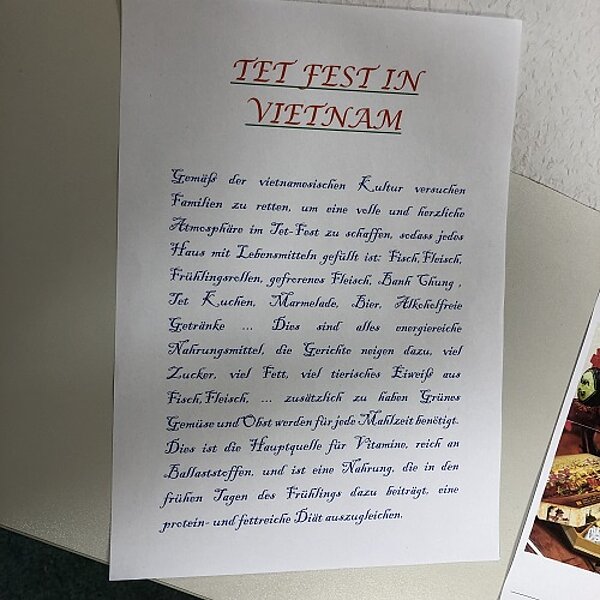 TET FEST IN
VIETNAM
Gemäß der vietnamesischen Kultur versuchen
Familien zu retten, um eine volle und herzliche
Atmosphäre im Tet-Fest zu schaffen, sodass jedes
Haus mit Lebensmitteln gefüllt ist: Fisch,Fleisch,
Frühlingsrollen, gefrorenes Fleisch, Banh Chung ,
Tet Kuchen, Marmelade, Bier, Alkoholfreie
Getränke ... Dies sind alles energiereiche
Nahrungsmittel, die Gerichte neigen dazu, viel
Zucker, viel Fett, viel tierisches Eiweiß aus
Fisch,Fleisch, ... zusätzlich zu haben Grünes
Gemüse und Obst werden für jede Mahlzeit benötigt.
Dies ist die Hauptquelle für Vitamine, reich an
Ballaststoffen, und ist eine Nahrung, die in den
frühen Tagen des Frühlings dazu beiträgt, eine
protein- und fettreiche Diät auszugleichen.